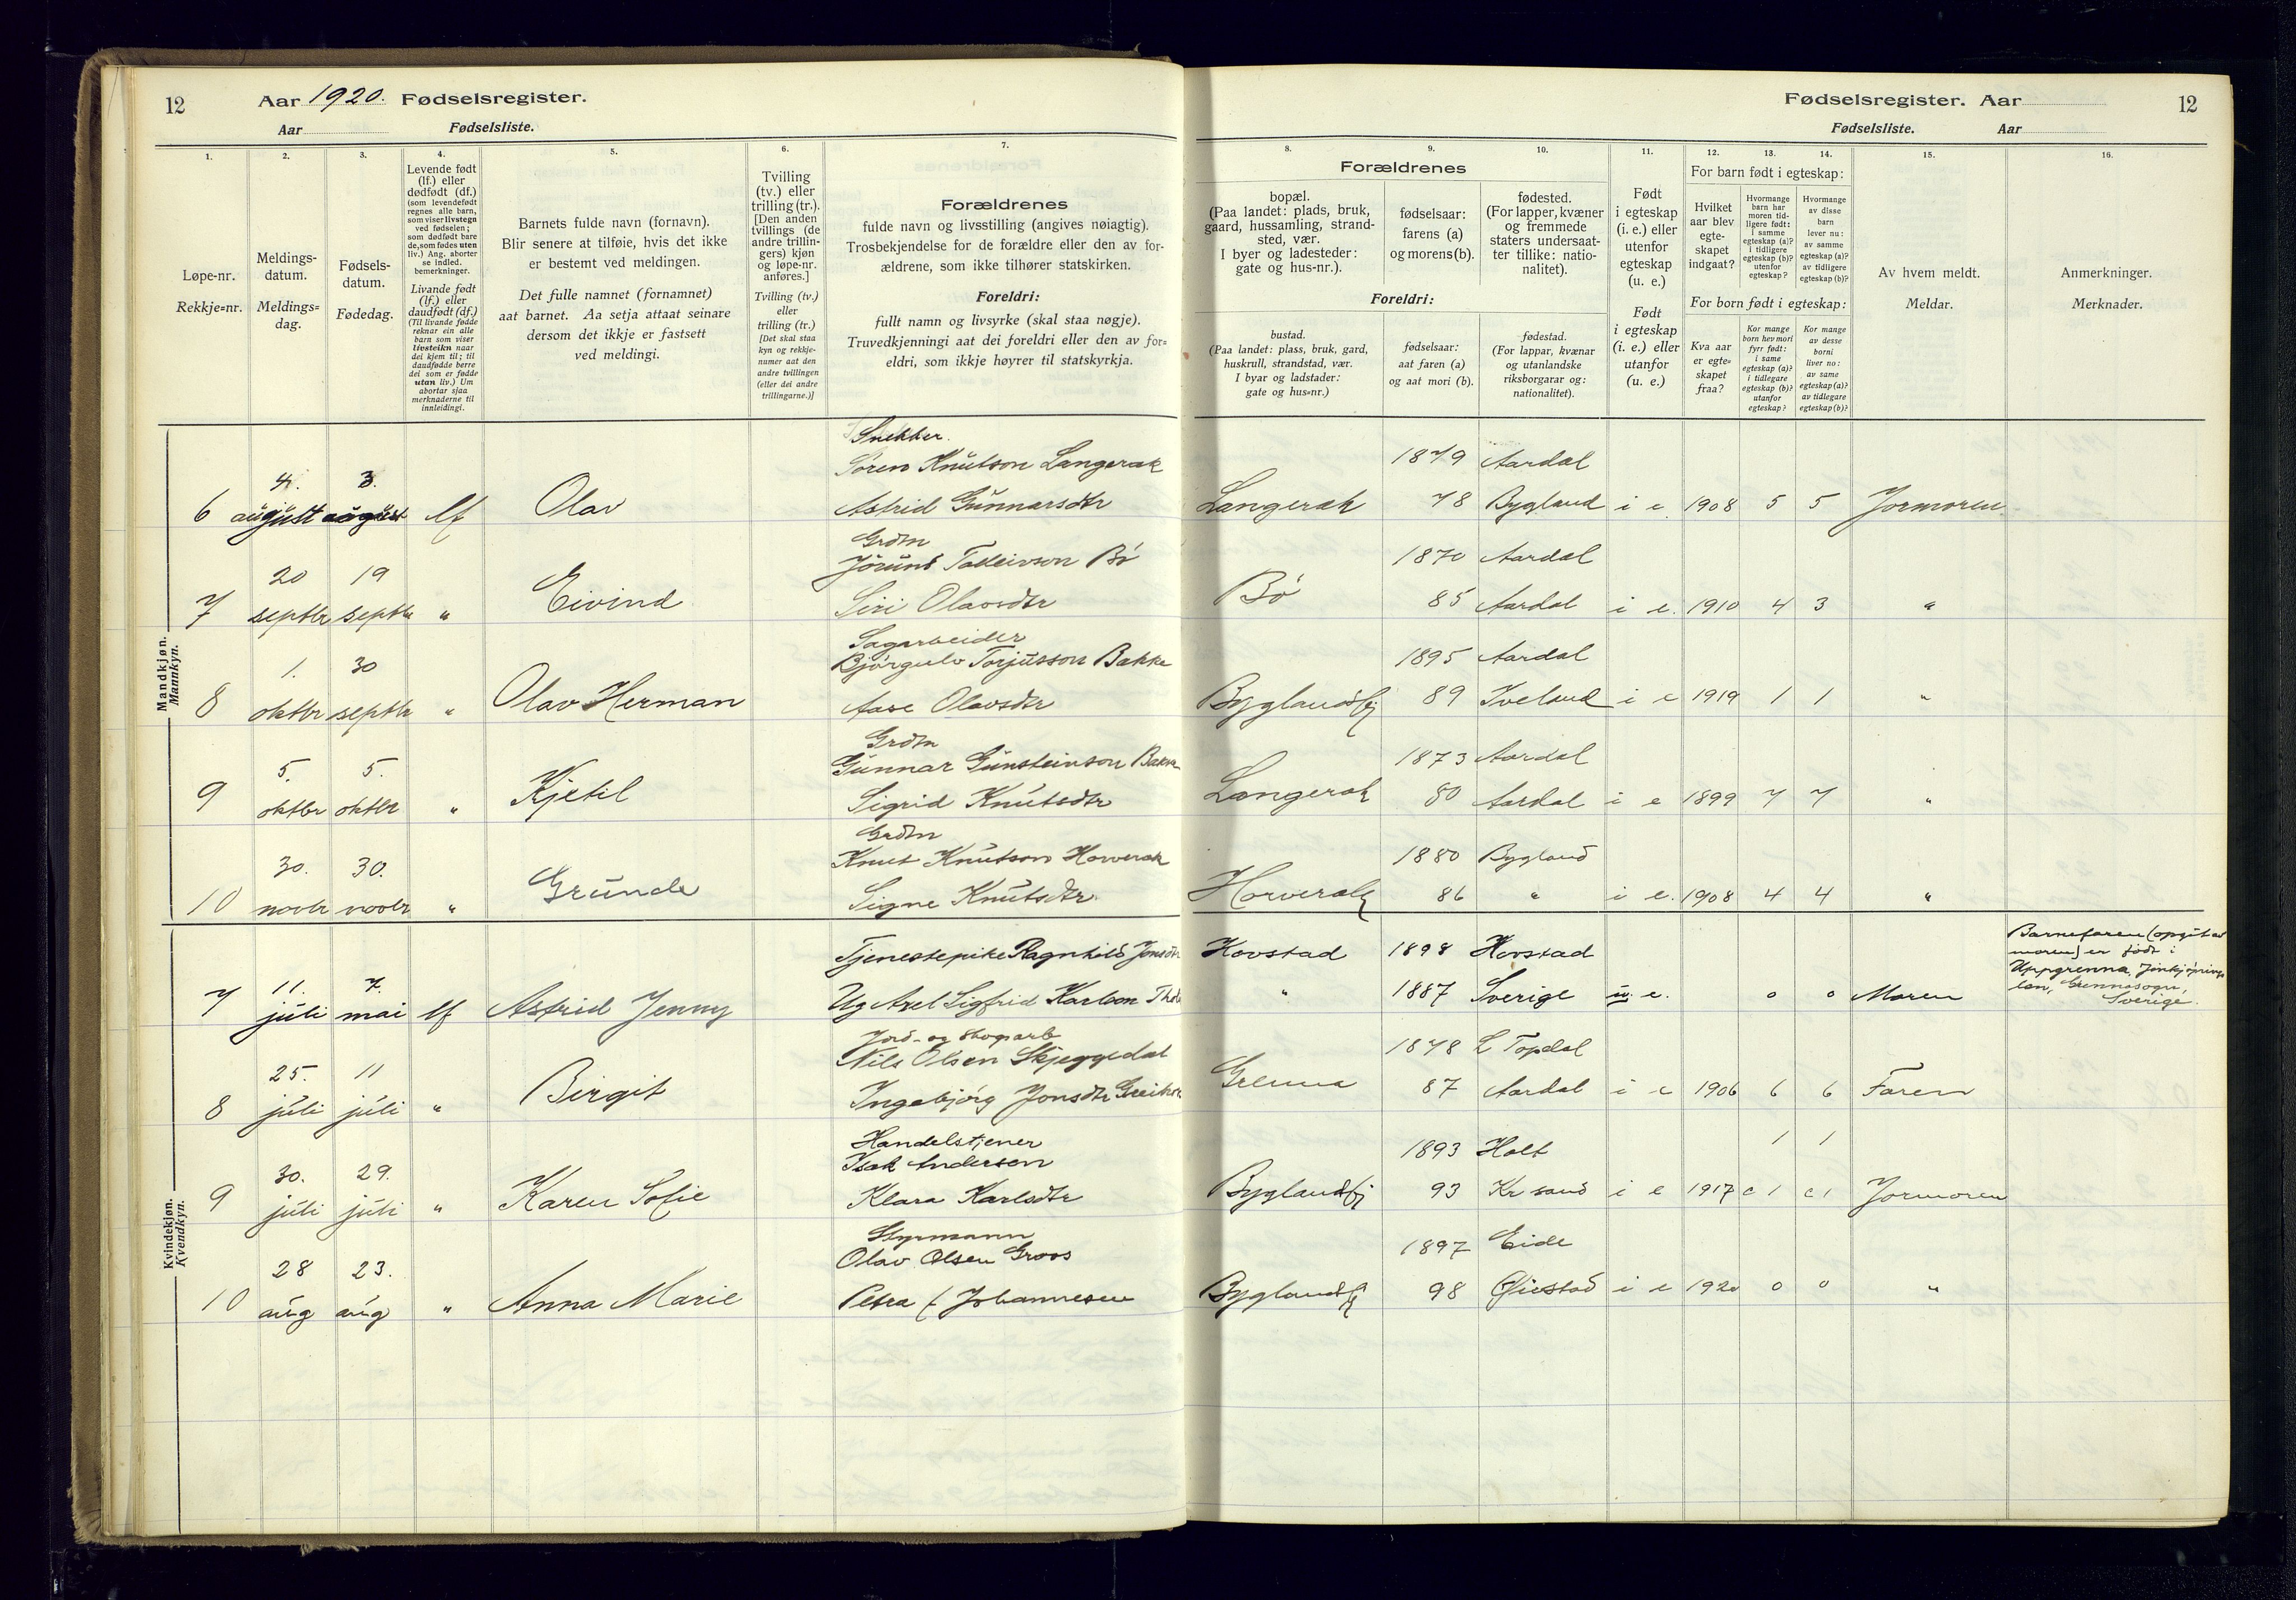 12 Aar 1920. Fødselsregister.
Aar Fødselsliste.
1. 2. 3. 4. 5. 6. 7.
Løpe-nr.
Rekkje=nr.
Meldings-
datum.
Meldings=
dag.
Fødsels-
datum.
Fødedag.
Levende født
(lf.) eller
dødfødt (df.)
(som levendefødt
regnes alle barn,
som viser livstegn
ved fødselen;
som dødfødt bare
de, som fødes uten
liv.) Ang. aborter
se indled.
bemerkninger.
Livande født
(lf.) eller
daudfødt (df.)
(Til livande fødde
reknar ein alle
barn som viser
livsteikn naar
dei kjem til; til
daudfødde berre
dei som er fødde
utan liv.) Um
abortar sjaa
merknaderne til
innleidingi.
Barnets fulde navn (fornavn).
Blir senere at tilføie, hvis det ikke
er bestemt ved meldingen.
Det fulle namnet (fornamnet)
aat barnet. Aa setja attaat seinare
dersom det ikkje er fastsett
ved meldingi.
Tvilling
(tv.) eller
trilling (tr.).
[Den anden
tvillings (de
andre trillin-
gers) kjøn
og løpe-nr.
anføres.]
Tvilling (tv.)
eller
trilling (tr.)
[Det skal staa
kyn og rekkje-
numer aat den
andre tvillingen
(eller dei andre
trillingarne.)]
Forældrenes
fulde navn og livsstilling (angives nøiagtig).
Trosbekjendelse for de forældre eller den av for-
ældrene, som ikke tilhører statskirken.
Foreldri:
fullt namn og livsyrke (skal staa nøgje).
Truvedkjenningi aat dei foreldri eller den av for=
eldri, som ikkje høyrer til statskyrkja.
Mandkjøn.
Mannkyn.
Snekker.
4. 3. Søren Knutson Langerak
6 august august lf Olav Astrid Gunnarsdtr
Grdm
20 19 Jørund Talleivson Bø
7 septbr septbr " Eivind Siri Olavsdtr
Sagarbeider
1. 30 Bjørgulv Torjusson Bakke
8 oktbr septbr " Olav Herman Aase Olavsdtr
Grdm
5. 5. Gunnar Gunsteinson
9 oktbr oktbr " Kjetil Sigrid Knutsdtr
Grdm
30. 30. Knut Knutson Horverak
10 novbr novbr " Grunde Signe Knutsdtr
Kvindekjøn.
Kvendkyn.
11. 7. Tjenestepike Ragnhild Jonsdtr
7 juli mai lf Astrid Jenny Ug Axel Sigfrid Karlson
Jord- og skogsarb
25. 11 Nils Olsen Skjeggedal
8 juli juli " Birgit Ingebjørg Jonsdtr
Handelstjener
30. 29. Isak Andersen
9 juli juli " Karen Sofie Klara Karlsdtr
Styrmann
28 23. Olav Olsen Groos
10 aug aug " Anna Marie Petra f. Johannesen
Fødselsregister. Aar 12
Fødselsliste. Aar
8. 9. 10. 11. 12. 13. 14. 15. 16.
Forældrenes
bopæl.
(Paa landet: plads, bruk,
gaard, hussamling, strand-
sted, vær.
I byer og ladesteder:
gate og hus-nr.).
fødselsaar:
farens (a)
og morens (b).
fødested.
(For lapper, kvæner
og fremmede
staters undersaat-
ter tillike: natio-
nalitet).
Foreldri:
bustad.
(Paa landet: plass, bruk, gard,
huskrull, strandstad, vær.
I byar og ladstader:
gate og hus=nr.)
fødselsaar:
aat faren (a)
og aat mori (b).
fødestad.
(For lappar, kvænar
og utanlandske
riksborgarar og:
nationalitet).
Født
i egteskap
(i. e.) eller
utenfor
egteskap
(u. e.)
Født
i egteskap
(i. e.) eller
utanfor
(u. e.)
For barn født i egteskap:
Hvilket
aar blev
egte-
skapet
indgaat?
Hvormange
barn har
moren tid-
ligere født:
i samme
egteskap (a)?
i tidligere
egteskap (b)?
utenfor
egteskap?
Hvormange
av disse
barn
lever nu:
av samme
egteskap (a)?
av tidligere
egteskap (b)?
For born født i egteskap:
Kva aar
er egte=
skapet
fraa?
Kor mange
born hev mori
fyrr født:
i same
egteskap (a)?
i tidlegare
egteskap (b)?
utanfor
egteskap?
Kor mange
av desse
borni
liver no:
av same
egteskap (a)?
av tidlegare
egteskap (b)?
Av hvem meldt.
Meldar.
Anmerkninger.
Merknader.
1879 Aardal
Langerak 78 Bygland i e. 1908 5 5 Jormoren
1870 Aardal
Bø 85 Aardal i e. 1910 4 3 "
1895 Aardal
Byglandsfj 89 Iveland i e 1919 1 1 "
1873 Aardal
Langerak 80 Aardal i e 1899 7 7 "
1880 Bygland
Horverak 86 " i e. 1908 4 4 "
Hovstad 1898 Hovstad
" 1887 Sverige u. e. 0 0 Moren
Barnefaren (opgit av
moren) er født i
Uppgrenna, Jönkjöpings
län, Grennasogn,
Sverige.
1878 L Topdal
Grenna 87 Aardal i e 1906 6 6 Faren
1893 Holt 1 1
Byglandsfj 93 Kr sand i e 1917 c 1 c 1 Jormoren
1897 Eide
Byglandsfj 98 Øiestad i e 1920 0 0 "